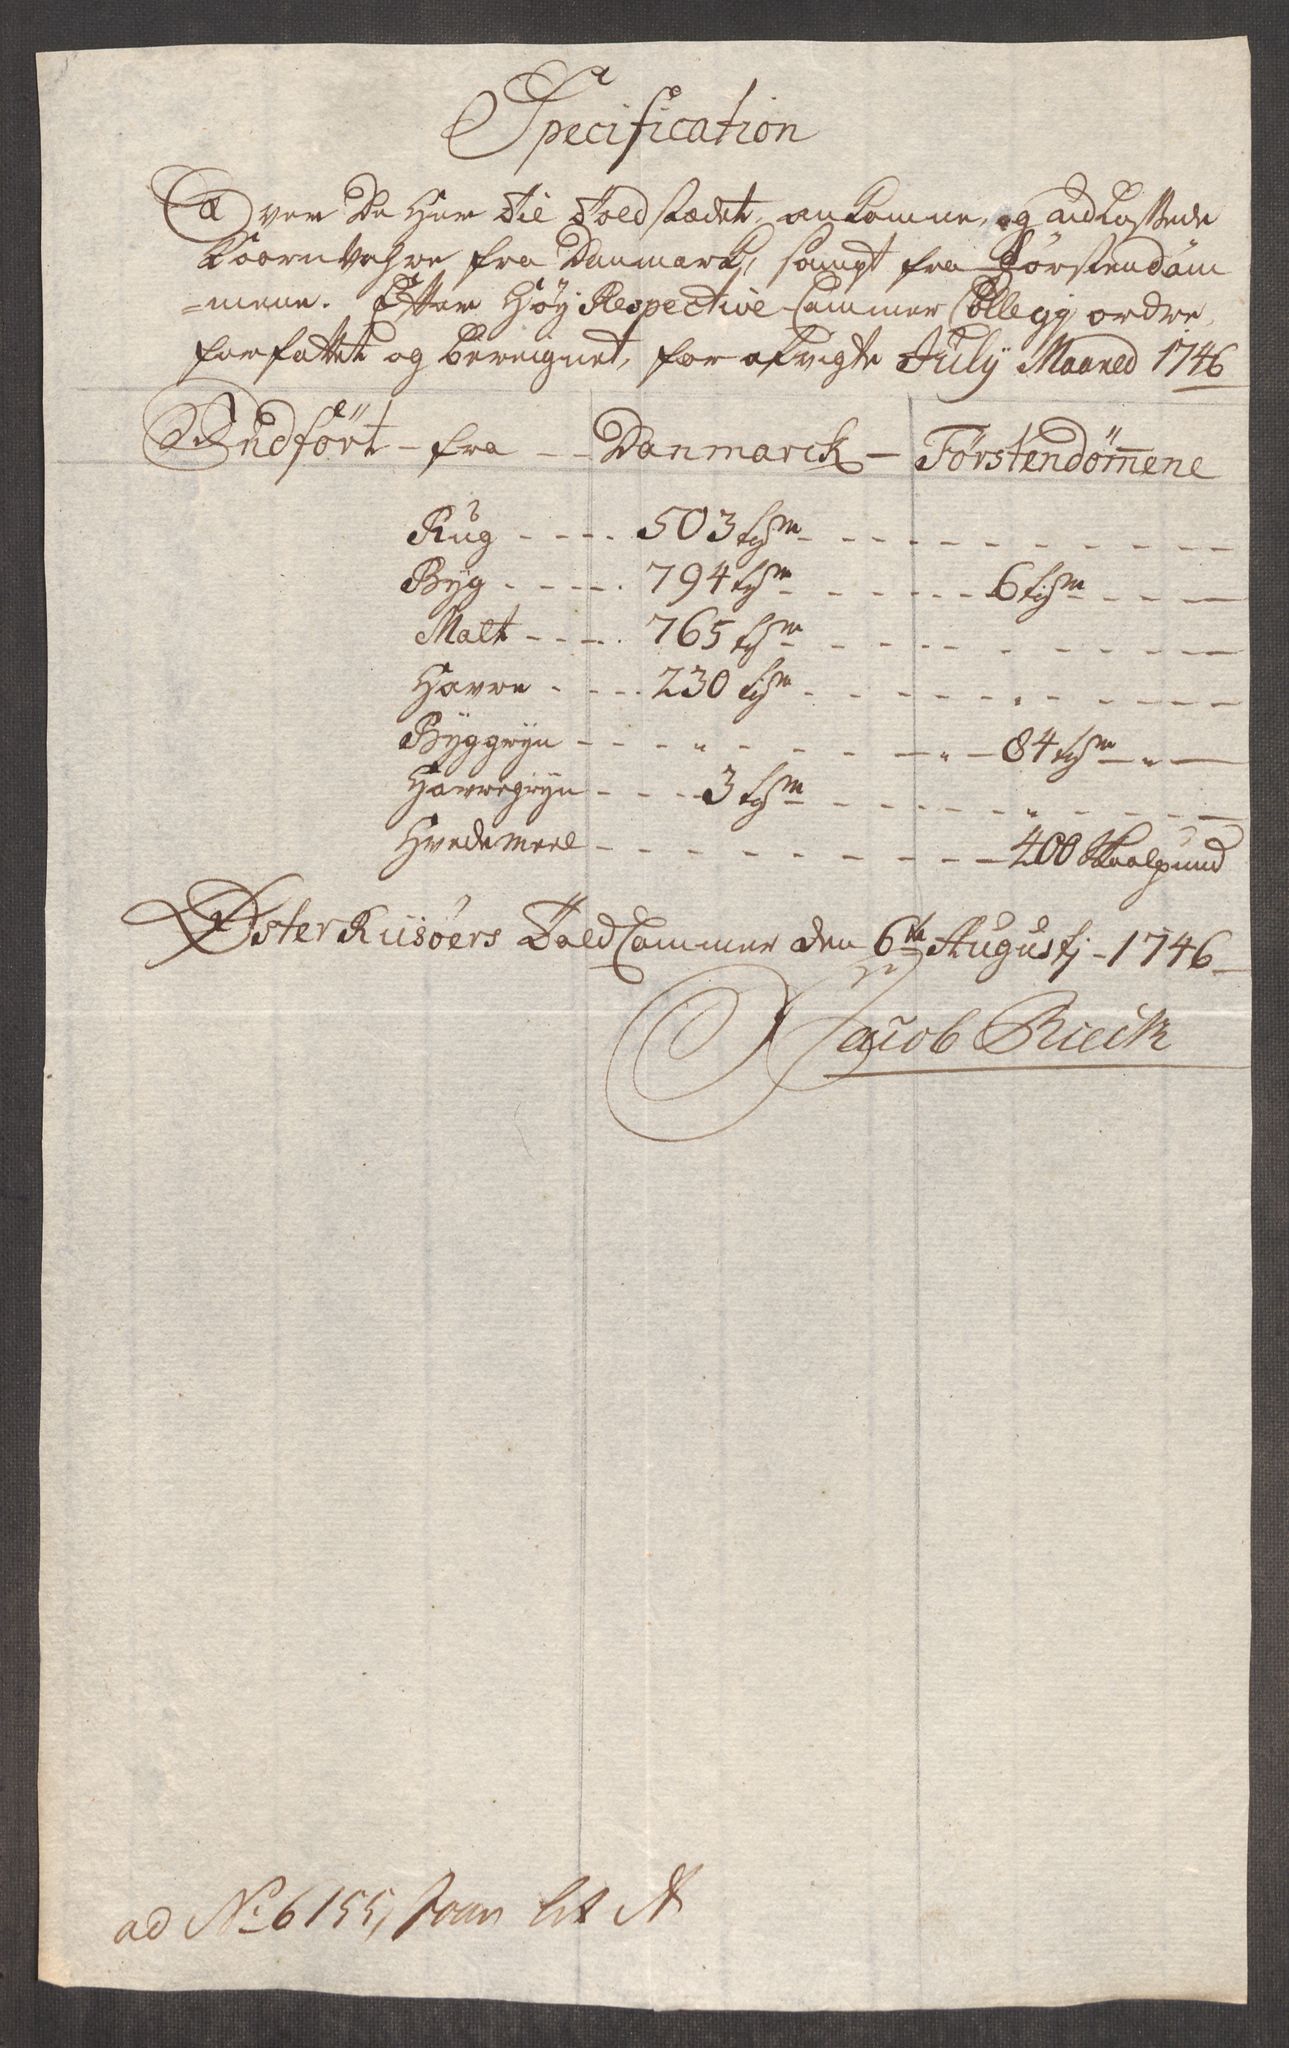 Specification
Over De Her til Toldstædet, ankomne, og udlossede
Koornvahre fra Danmark, sampt fra Förstendöm
=mene. Efter Høy Respective Cammer Collegij ordre,
forfattet og bereignet, for afvigte Julij Maaned 1746
Indfört - fra - - Danmarck - Förstendömene
Rug - - - - 503 tdr
Byg - - - - 794 tdr - - - - 6 tdr
Malt - - - - 765 tdr
Havre - - - - 230 tdr
Byggryn - - - - " - - - - 84 tdr
Havregryn - - - - 3 tdr
Hvedemeel - - - - 400 Skaalpund
Øster Riisöers Told Cammer den 6te Augustj - 1746
Jacob Rieck
ad No 6155, Lit A